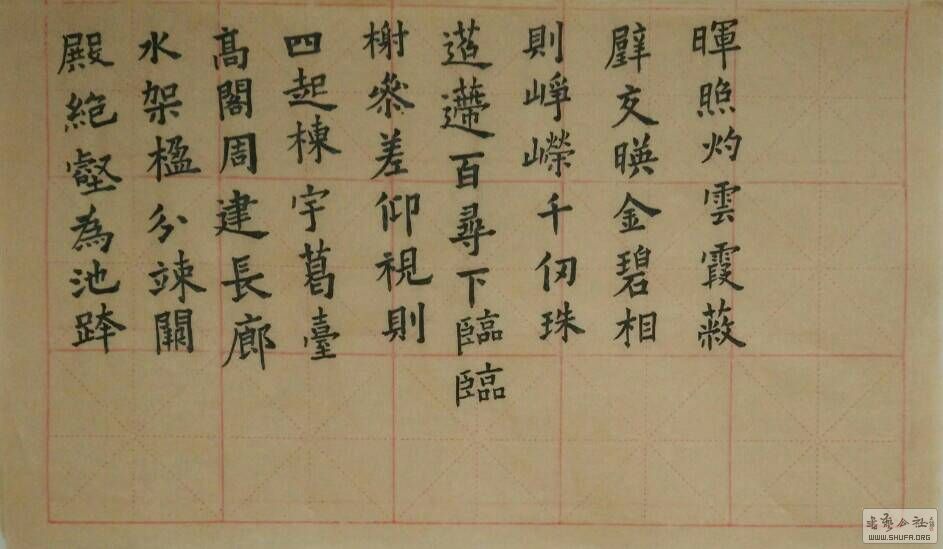 殿絕壑為池跨
水架楹分竦闕
高閣周建長廊
四起棟宇葛臺
榭參差仰視則
迢遰百尋下臨臨
則崢嶸千仞珠
璧交暎金碧相
暉照灼雲霞蔽
WWW.SHUFA.ORG